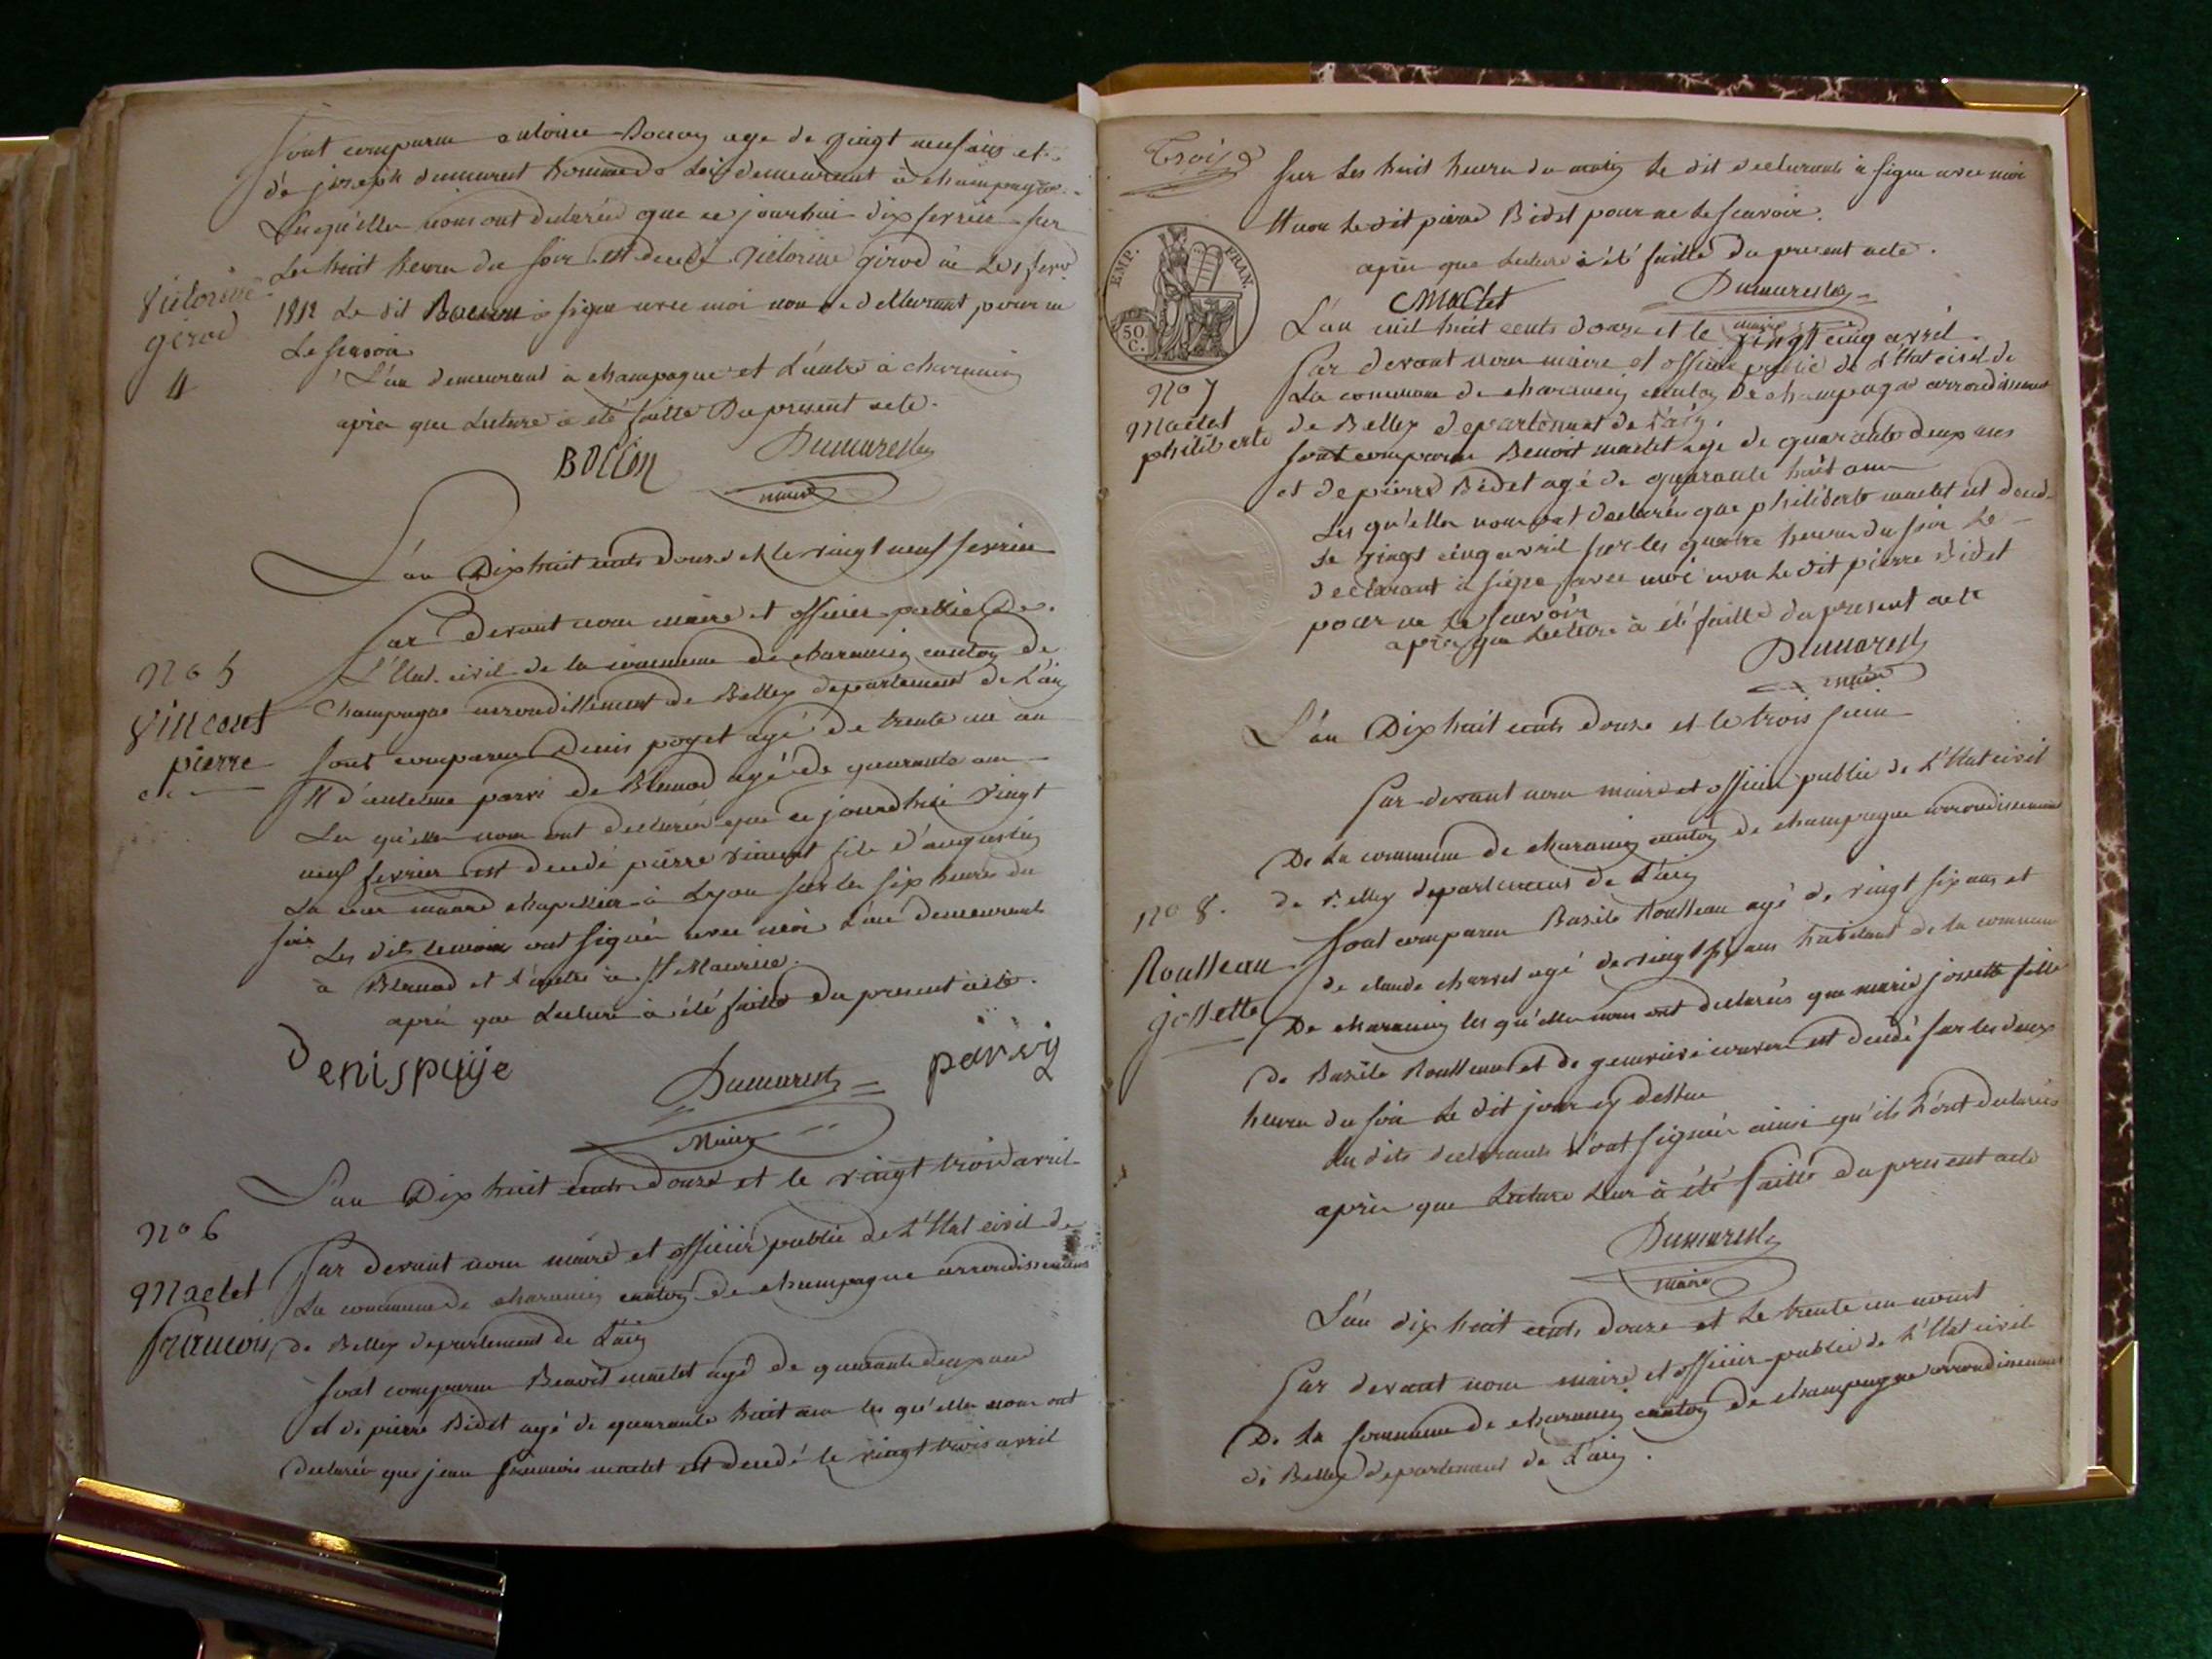 sont comparus antoine Bouvy age de vingt neuf ans et
de joseph dumarest homme de Loi demeurant à champagne
Lesqu'elles nous ont declarée que ce jourhui dix fevrier sur
Les huit heures du soir est decedé victorine girod
victorine
gerod
4
1812 Le dit à signé avec moi non le dellurant pour ne
Le scavoir
L'un demeurant à champagne et L'autre à charancin
après que Lecture à été faitte Du present acte.
Bollon Dumarest
maire
L'an Dix huit cents douze et le vingt neuf fevrier
Par Devant nous maire et officier public De
L'Etat civil de la commune de charancin canton de
No 5
Vincent
pierre
Champagne arrondissement de Belley departement de L'ain
sont comparus Denis poyet agé de trente un an
Et d'antelme parvi de Blanod agé de quarante ans
Les qu'elles nous ont declarée que ce jourdhui vingt
neuf fevrier est decedé pierre vincent fils d'augustin
chapellier à Lyon sur les six heures du
soir Les dits temoins ont signés avec moi L'un demeurant
à Blanod et L'autre à St Maurice.
après que Lecture à été faitte du present acte.
Denispuije Dumarest parviy
Maire
L'an Dix huit cents douze et le vingt trois avril
No 6
Maclet
francois
Par devant nous maire et officier public de L'Etat civil de
La commune de charancin canton de champagne arrondissement
de Belley departement de L'ain
sont comparus Benoit maclet agé de quarante deux ans
et de pierre Bidet agé de quarante huit ans les qu'elles nous ont
declarée que jean francois maclet est decedé le vingt trois avril
Trois
sur Les huit heures du matin Le dit declarant à signé avec moi
Et non Le dit pierre Bidet pour ne Le scavoir.
après que Lecture à été faitte du present acte.
EMP. FRAN.
50 C.
Maclet Dumarest
maire
L'an mil huit cents douze et le vingt cinq avril
Par devant nous maire et officier public de L'Etat civil de
La commune de charancin canton De champagne arrondissement
No 7
Maclet
philiberte
de Belley departement de L'ain.
sont comparus Benoit maclet age de quarante deux ans
et de pierre Bidet agé de quarante huit ans
Les qu'elles nous ont declarée que philiberte maclet est deced
Le vingt cinq avril sur les quatre heures du soir Le
declarant à signé avec moi non Le dit pierre Bidet
pour ne Le scavoir
après que Lecture à été faitte du present acte
Dumarest
maire
L'an Dix huit cents douze et le trois juin
Par devant nous maire et officier public de L'Etat civil
De La commune de charancin canton de champagne arrondissement
de Belley departement de L'ain
No 8.
Roulleau
josette
sont comparus Basile Roulleau agé de vingt six ans et
de claude charvet agé de vingt ans habitant de la commune
De charancin les qu'elles nous ont declarés que marie josette fille
de Basile Roulleau et de genevieve est decedé sur les deux
heures du soir Le dit jour cy dessus
Les dits declarants n'ont signés ainsi qu'ils L'ont declarés
après que Lecture Leur à été faitte du present acte
Dumarest
maire
L'an dix huit cents douze et Le trente un aoust
Par devant nous maire et officier public de L'Etat civil
De La commune de charancin canton de champagne arrondissement
de Belley departement de L'ain.